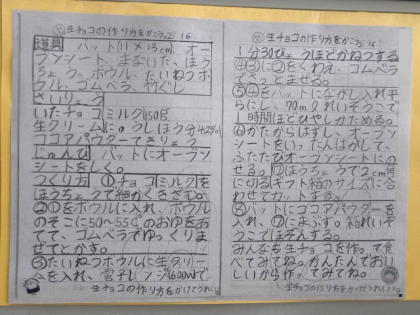 生チョコの作り方をかこう 16
道具 バット(11×13cm)、オー
ブンシート、まないた、ほう
ちょう、ボウル、たいねつボ
ウル、ゴムベラ、竹ぐし
ざいりょう
いたチョコ(ミルク)150g
生クリーム しぼう分42%
ココアパウダーてきりょう
じゅんび バットにオーブン
シートをしく。
つくり方 ①チョコ(ミルク)を
ほうちょうで細かくきざむ。
②①をボウルに入れ、ボウル
のそこに50〜55℃のおゆをあ
てて、ゴムベラでゆっくりま
ぜてとかす。
③たいねつボウルに生クリー
ムを入れ、電子レンジ(600W)で
生チョコの作り方をかけてうれしい
生チョコの作り方をかこう 16
1分30びょうほどかねつする
④③に②をくわえ、ゴムベラ
でさっとまぜる。
⑤④をバットにながし入れ平
らにし、70mlれいぞうこで
1時間ほどひやしかためる。
⑥かたからはずし、オーブン
シートをいったんはがして、
ふたたびオーブンシートにの
せる。⑦ほうちょうで2cm時
に切るギフト箱のサイズに合
わせてカットする。
⑧バットにココアパウダーを
入れ、⑦にまぶす。れいぞ
うこでほぞんする。
みんなも生チョコを作って食
べてみてね。かんたんでおい
しいから作ってみてね。
生チョコの作り方をかけてうれしい